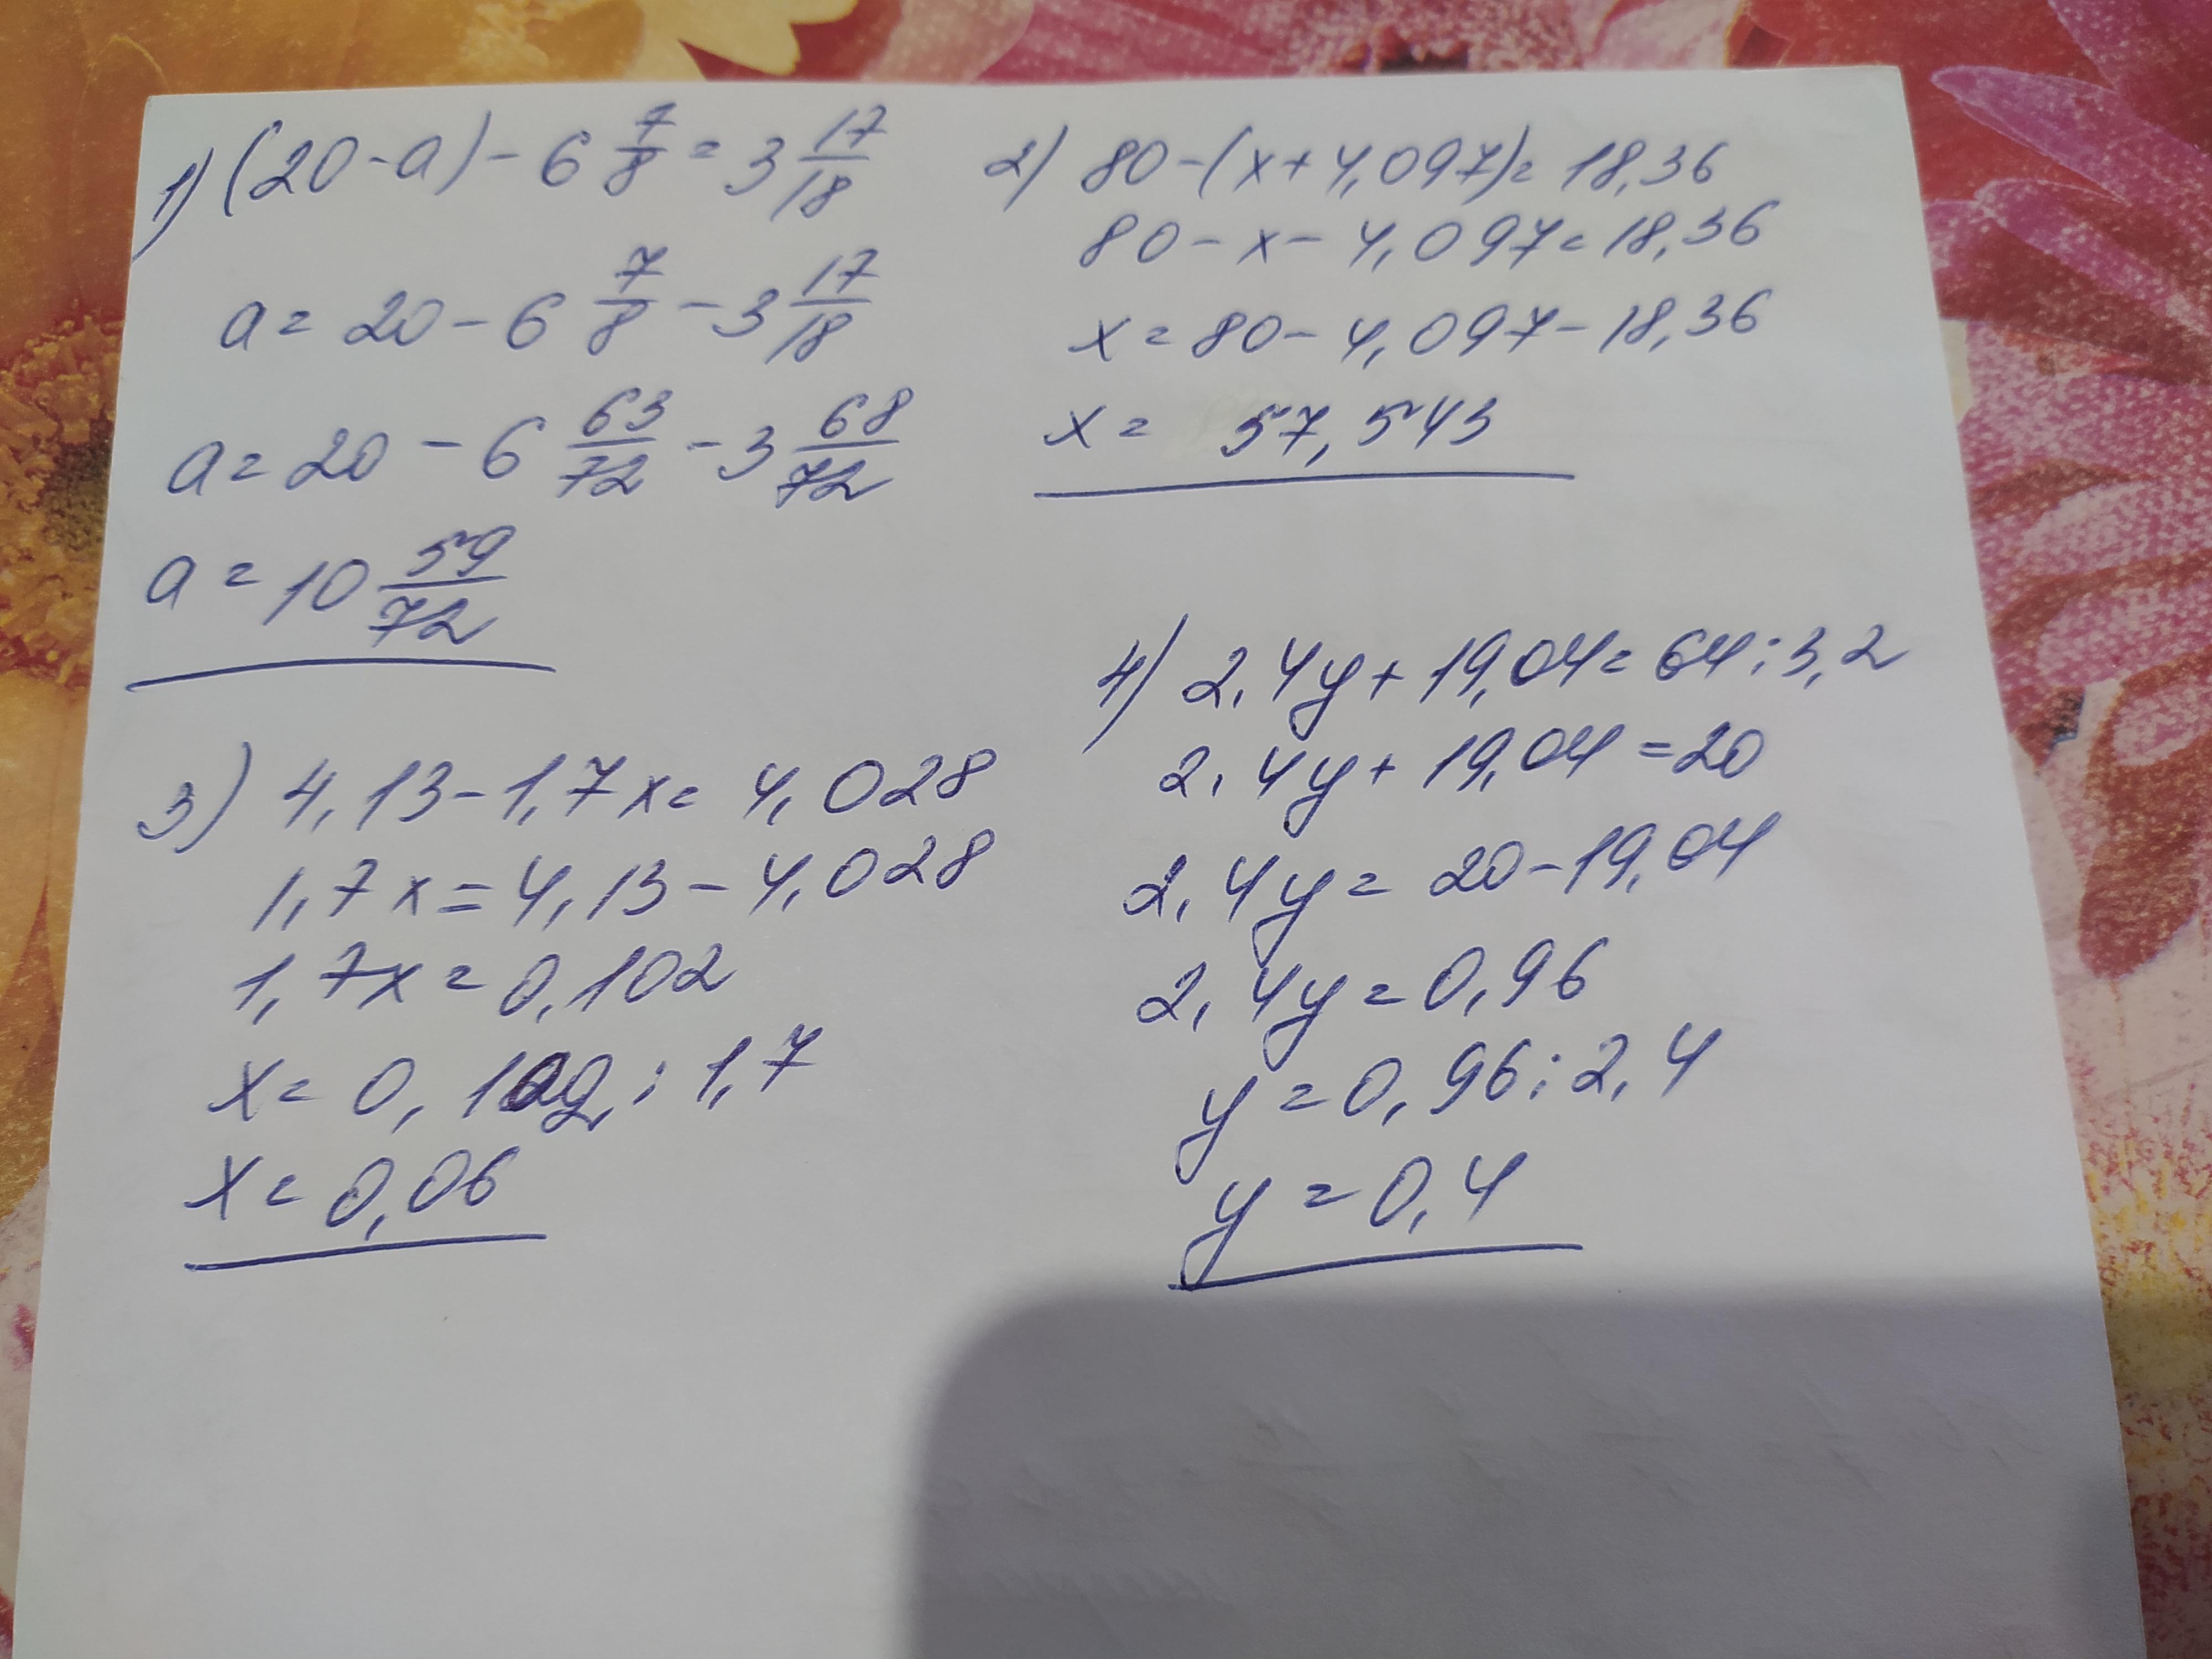 1) (20-a) - 6 7/8 = 3 17/18
a = 20 - 6 7/8 - 3 17/18
a = 20 - 6 63/72 - 3 68/72
a = 10 59/72
2) 80-(x+4,097) = 18,36
80-x-4,097 = 18,36
x = 80-4,097-18,36
x = 57,543
3) 4,13-1,7x = 4,028
1,7x = 4,13-4,028
1,7x = 0,102
x = 0,102 : 1,7
x = 0,06
4) 2,4y + 19,04 = 64 : 3,2
2,4y + 19,04 = 20
2,4y = 20-19,04
2,4y = 0,96
y = 0,96 : 2,4
y = 0,4